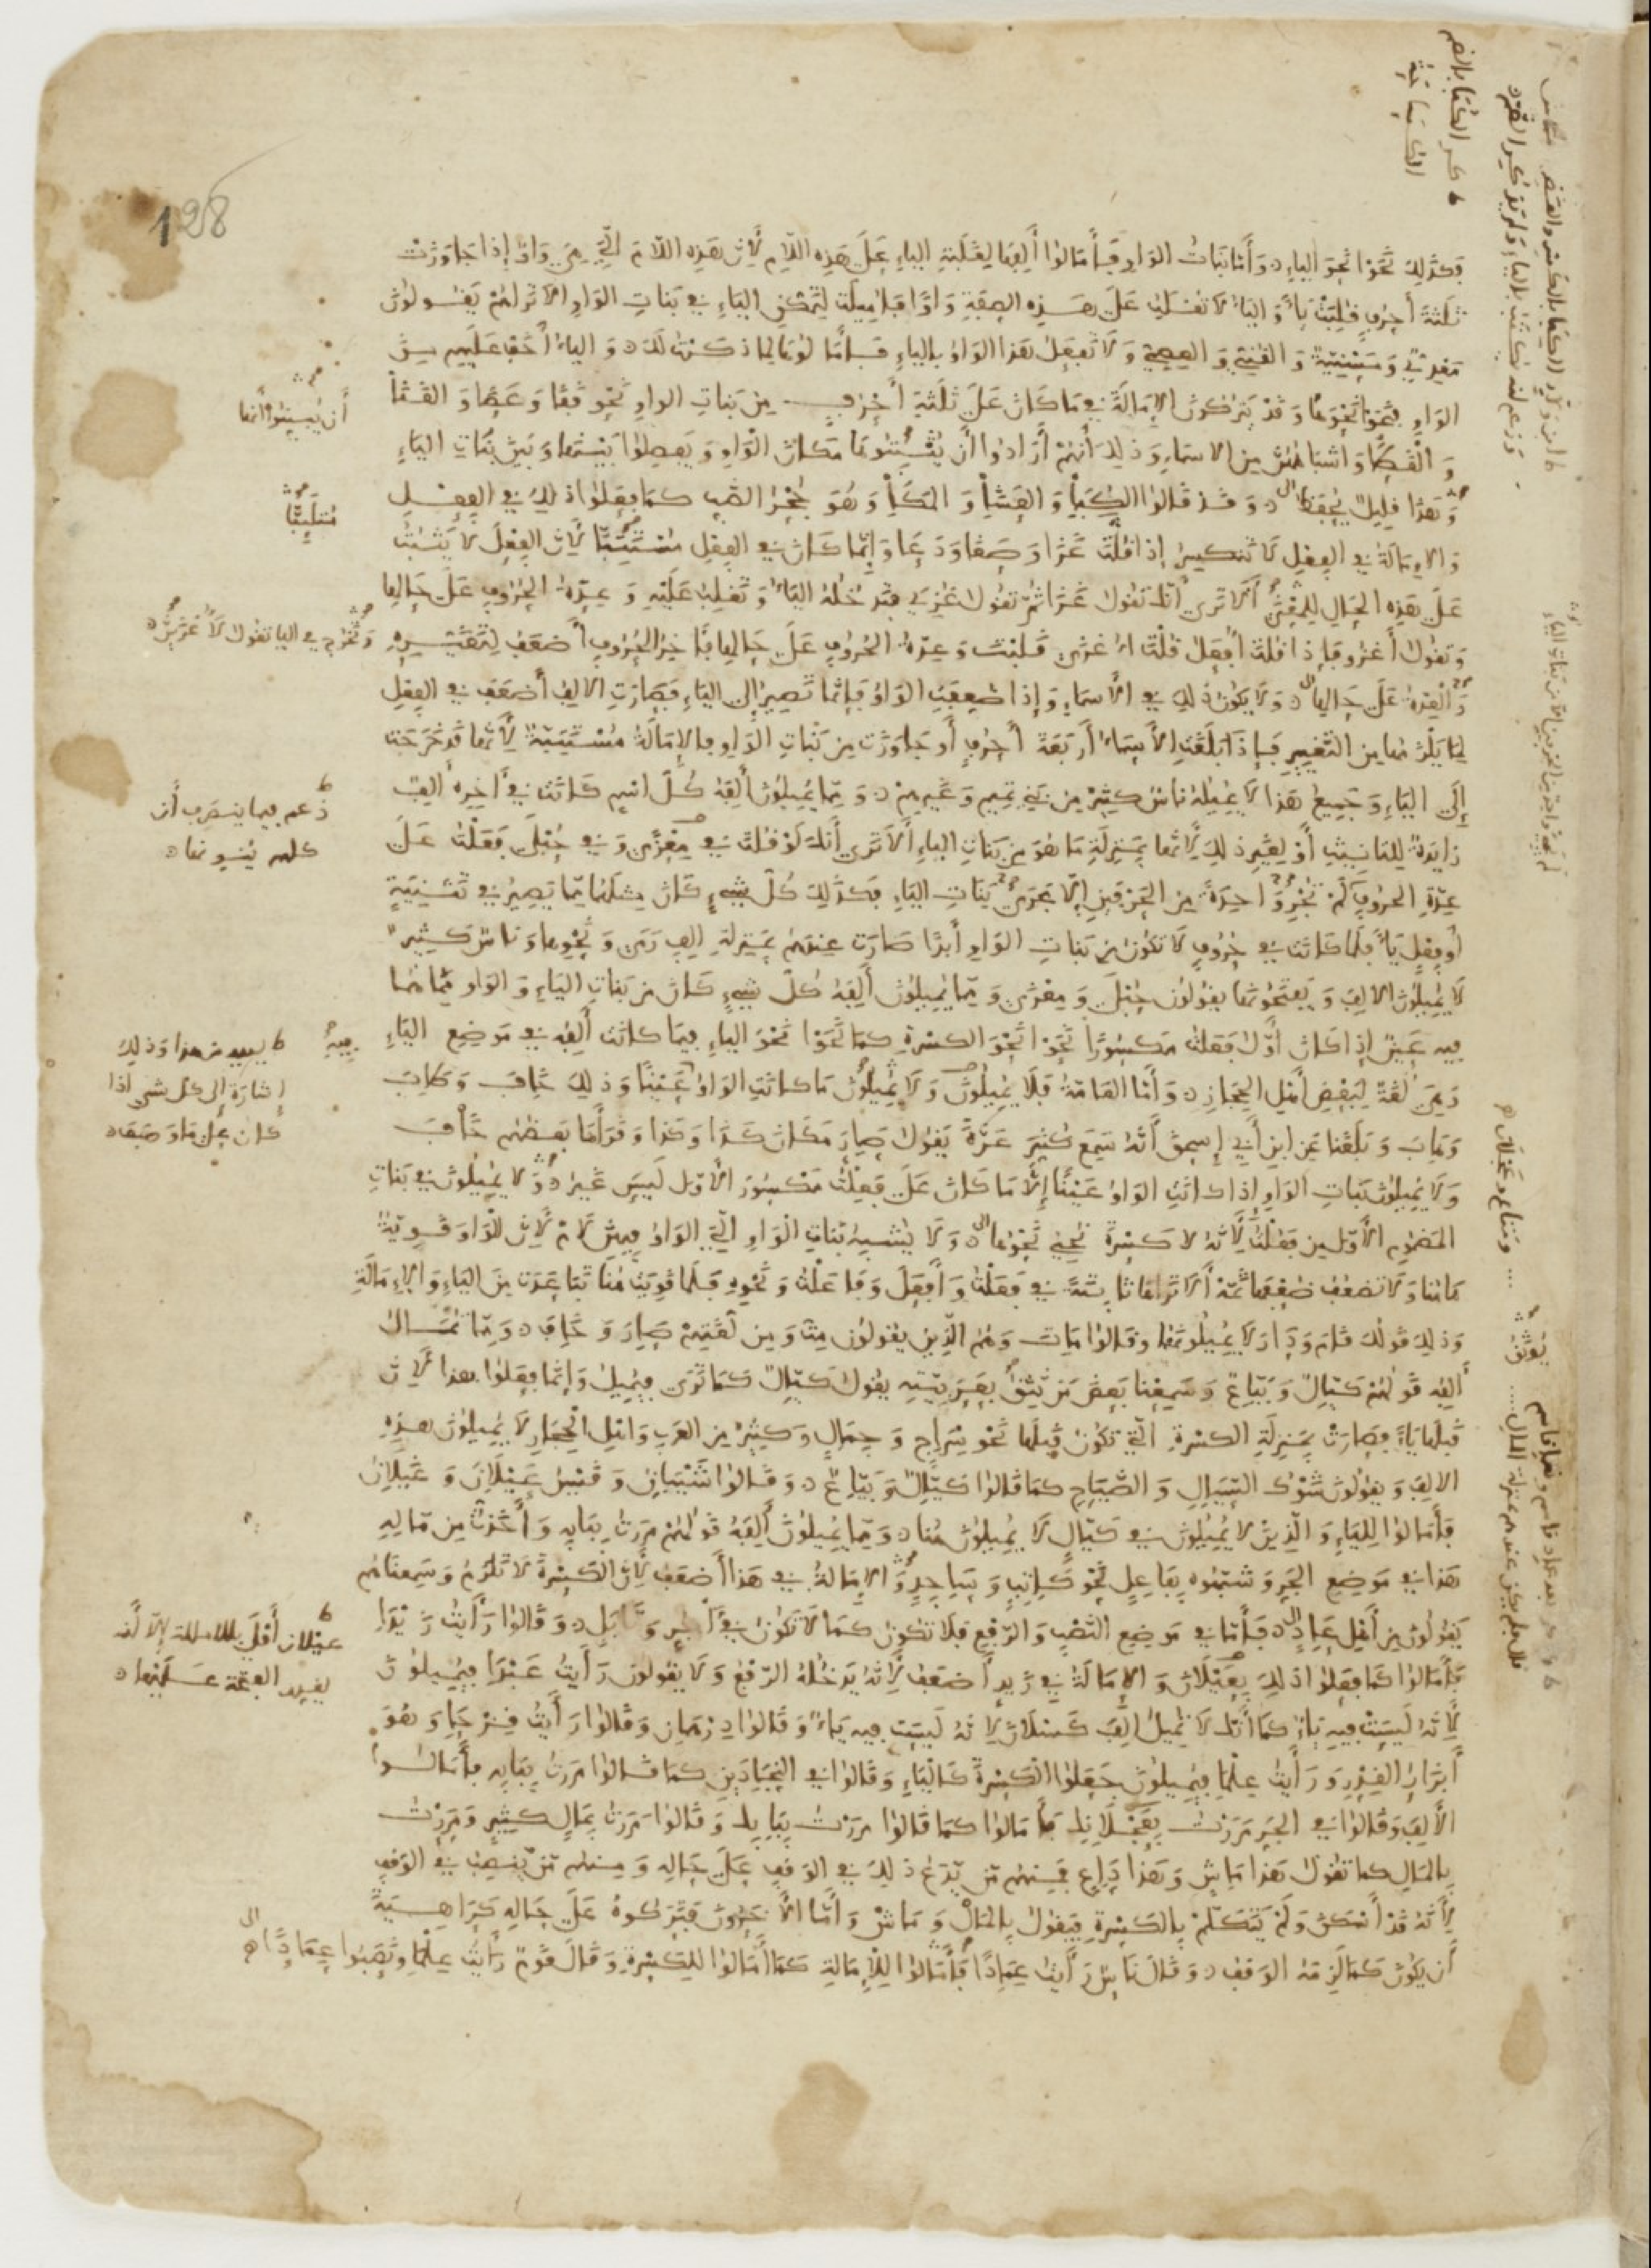 فكذلك نحوا نحو الياء وأما بنات الواو فأمالوا ألفها لغلبة الياء على هذه اللام لأن هذه اللام التي هي واو إذا جاوزت
ثلثة أحرف قلبت ياء والياء لا تقلب على هذه الصفة واوا فأميلت لتمكن الياء في بنات الواو ألا تراهم يقولون
معدي ومسنية والقني والعصي ولا تفعل هذا الواو بالياء فأمالوها لما ذكرت لك والياء أخف عليهم من
الواو فنحوا نحوها وقد يتركون الإمالة فيما كان على ثلثة أحرف من بنات الواو نحو قفا وعصا والقنا
والقطا وأشباههن من الأسماء وذلك أنهم أرادوا أن يثبتوها مكان الواو ويفصلوا بينها وبين بنات الياء
وهذا قليل يحفظ وقد قالوا الكبا والعشا والمكا وهو جحر الضب كما فعلوا ذلك في الفعل
والإمالة في الفعل لا تنكسر إذا قلت غزا وصفا ودعا وإنما كان في الفعل مستتبا لأن الفعل لا يثبت
على هذه الحال للمعنى ألا ترى أنك تقول غزا ثم تقول غزي فتدخله الياء وتغلب عليه وعدة الحروف على حالها
وتقول أغزو فإذا قلت أفعل قلت أغزى قلبت وعدة الحروف على حالها فآخر الحروف أضعف لتغييره
والعدة على حالها ولا يكون ذلك في الأسماء وإذا ضعفت الواو فإنما تصير إلى الياء فصارت الألف أضعف في الفعل
لما يلزمها من التغيير فإذا بلغت الأسماء أربعة أحرف أو جاوزت من بنات الواو فالإمالة مستتبة لأنها قد خرجت
إلى الياء وجميع هذا لا يميله ناس كثير من بني تميم وغيرهم ومما يميلون ألفه كل اسم كانت في آخره ألف
زايدة للتأنيث أو لغير ذلك لأنها بمنزلة ما هو من بنات الياء ألا ترى أنك لو قلت في معزى وفي حبلى فعلت على
عدة الحروف لم تجئ واحدة من الحرفين إلا مجرى بنات الياء فكذلك كل شيء كان مثلهما مما يصير في تثنية
أو فعل ياء فلما كانت في حروف لا تكون من بنات الواو أبدا صارت عندهم بمنزلة ألف رمى ونحوها وناس كثير
لا يميلون الألف ويفتحونها يقولون حبلى ومعزى ومما يميلون ألفه كل شيء كان من بنات الياء والواو مما هما
فيه عين إذا كان أول فعلت مكسورا نحوا نحو الكسرة كما نحوا نحو الياء فيما كانت ألفه في موضع الياء
وهي لغة لبعض أهل الحجاز وأما العامة فلا يميلون ولا يميلون ما كانت الواو عينا وذلك خاف وطاب
وهاب وبلغنا عن ابن أبي إسحق أنه سمع كثير عزة يقول صار مكان كذا وكذا وقرأها بعضهم خاف
ولا يميلون بنات الواو إذا كانت الواو عينا إلا ما كان على فعلت مكسور الأول ليس غيره ولا يميلون في بنات
المضموم الأول من فعلت لأنه لا كسرة تنحى نحوها ولا يشبه بنات الواو التي الواو فيهن لام لأن الواو قوية
هاهنا ولا تضعف ضعفها ثمة ألا تراها ثابتة في فعلت وأفعل وفاعلت ونحوه فلما قويت هنا تباعدت من الياء والإمالة
وذلك قولك قام ودار لا يميلونها وقالوا مات وهم الذين يقولون مت ومن لغتهم صار وخاف ومما تمال
ألفه قولهم كيال وبياع وسمعنا بعض من يوثق بعربيته يقول كيال كما ترى فيميل وإنما فعلوا هذا لأن
قبلها ياء فصارت بمنزلة الكسرة التي تكون قبلها نحو سراج وجمال وكثير من العرب وأهل الحجاز لا يميلون هذه
الألف ويقولون شوك السيال والضياح كما قالوا كيال وبياع وقالوا شيبان وقيس عيلان وغيلان
فأمالوا للياء والذين لا يميلون في كيال لا يميلون هنا ومما يميلون ألفه قولهم مررت ببابه وأخذت من ماله
هذا في موضع الجر وشبهوه بفاعل نحو كاتب وساجد والإمالة في هذا أضعف لأن الكسرة لا تلزم وسمعناهم
يقولون من أهل عاد فأما في موضع النصب والرفع فلا تكون كما لا تكون في آجر وتابل وقالوا رأيت زيدا
فأمالوا كما فعلوا ذلك بغيلان والإمالة في زيد أضعف لأنه يدخله الرفع ولا يقولون رأيت عبدا فيميلون
لأنه ليست فيه ياء كما أنك لا تميل ألف كسلان لأنه ليست فيه ياء وقالوا درهمان وقالوا رأيت قزحا وهو
أبزار القدر ورأيت علما فيميلون جعلوا الكسرة كالياء وقالوا في النجادين كما قالوا مررت ببابه فأمالوا
الألف وقالوا في الجر مررت بعجلانك فأمالوا كما قالوا مررت ببابك وقالوا مررت بمال كثير ومررت
بالمال كما تقول هذا ماش وهذا داع فمنهم من يدع ذلك في الوقف على حاله ومنهم من ينصب في الوقف
لأنه قد أسكن ولم يتكلم بالكسرة فيقول بالمال وماش وأما الآخرون فتركوه على حاله كراهية
أن يكون كما لزمه الوقف وقال ناس رأيت عمادا فأمالوا للإمالة كما أمالوا للكسرة وقال قوم رأيت علما ونصبوا عمادا
128
أن يبينوا أنها
متلئبا
ط زعم فيما ينصرف أن
كلهم ينونها